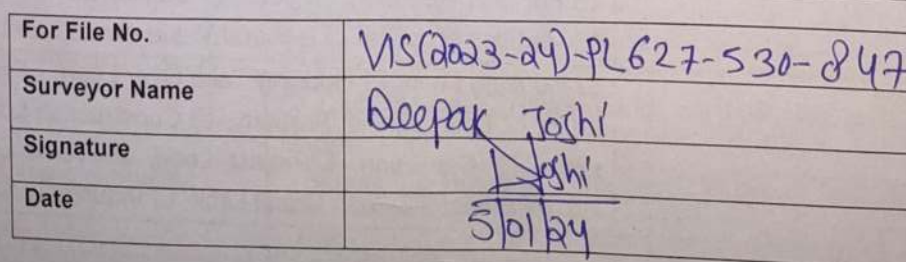 For File No. VIS(2023-24)-PL627-530-847
Surveyor Name Deepak Joshi
Signature DJoshi
Date 5/01/24